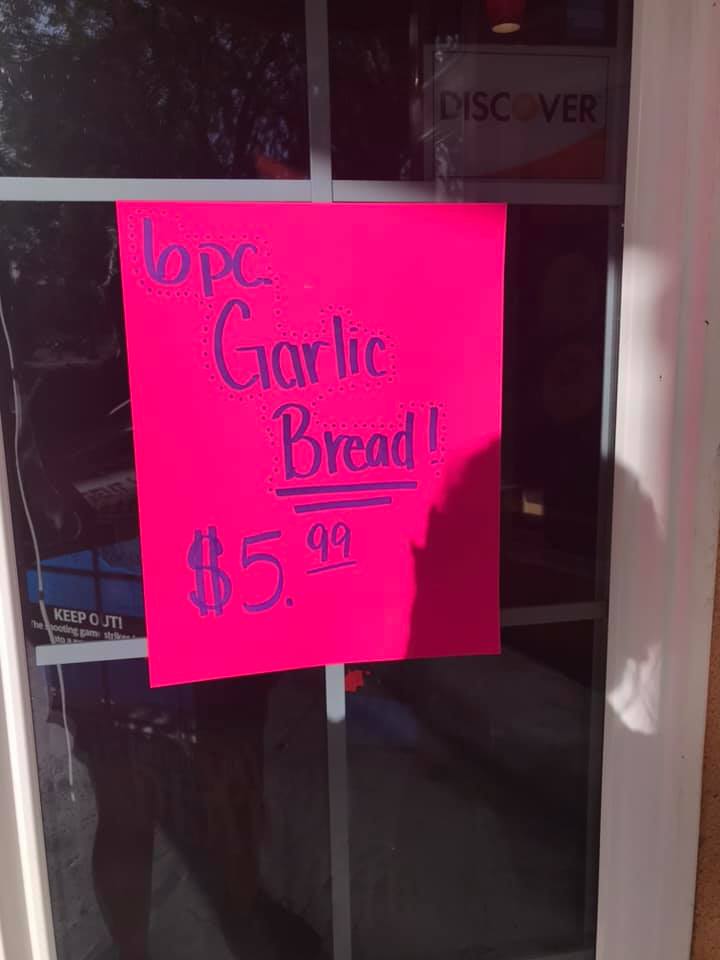 DISCOVER
6 pc.
Garlic
Bread!
$5.99
KEEP OUT!
The shooting game strikes